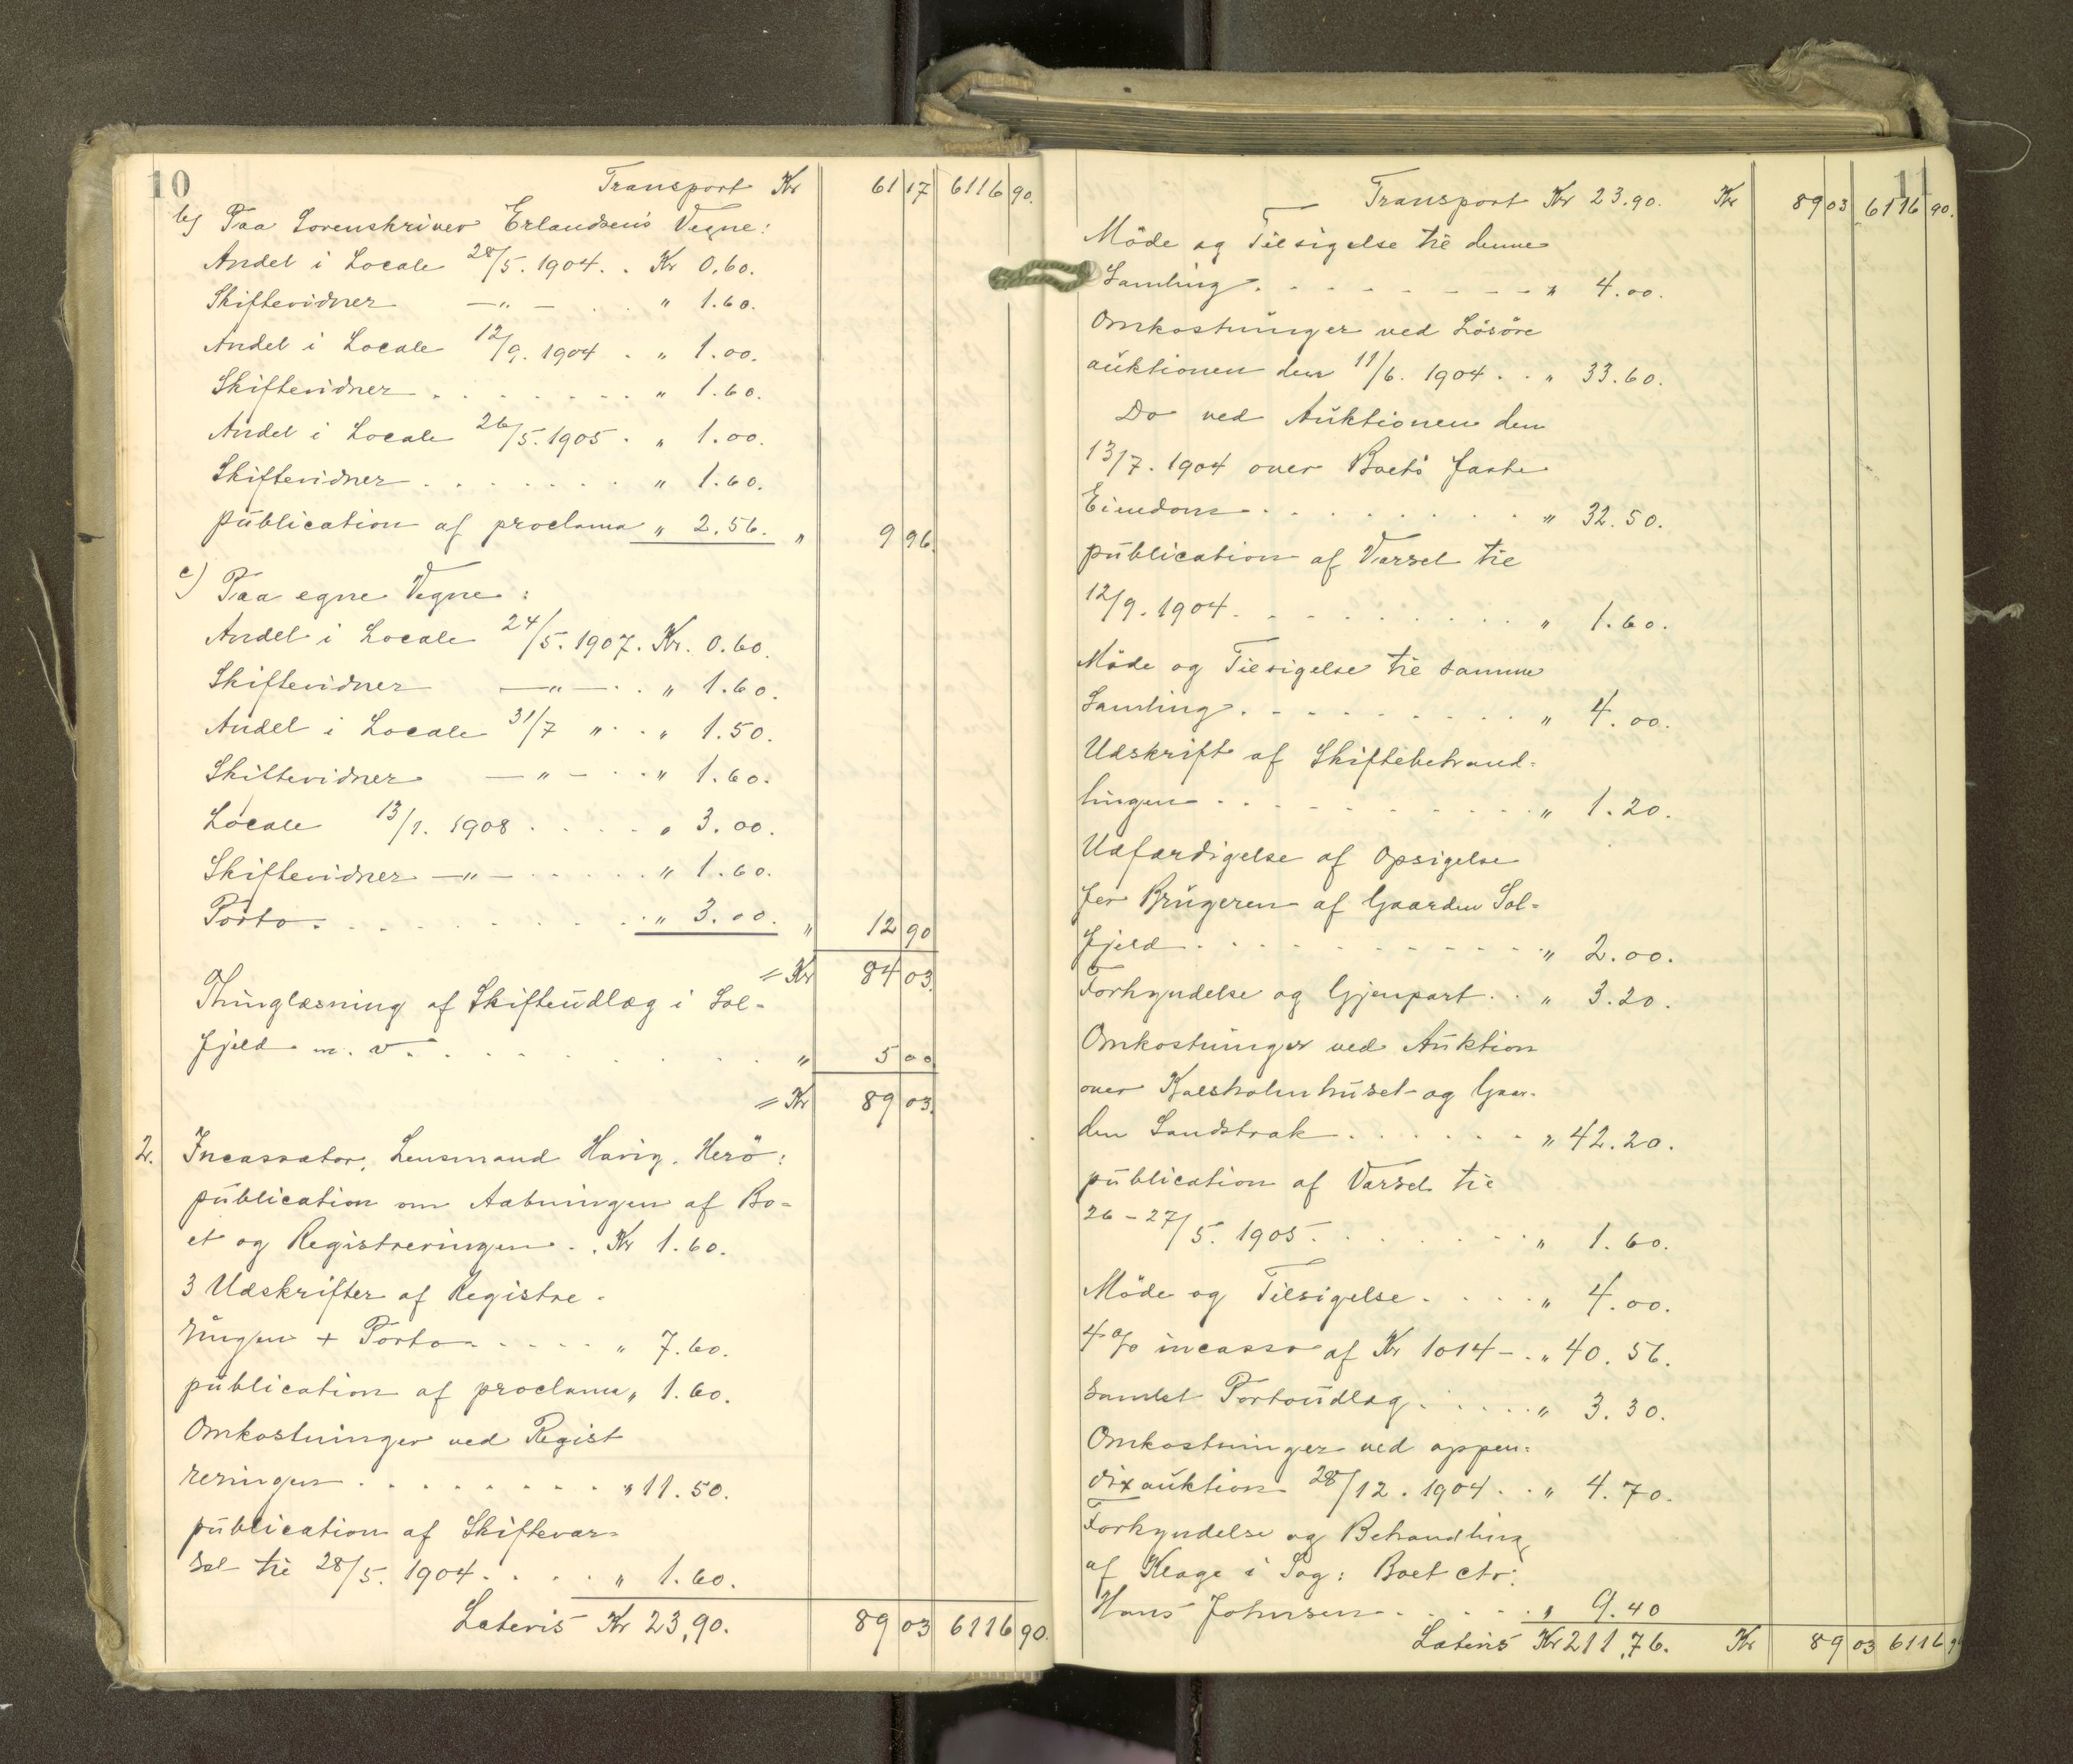 10
Transport Kr 61 17 6116 90.
b) Paa Sorenskriver Erlandsens Vegne:
Andel i Locale 28/5. 1904. . Kr 0.60.
Skiftevidner —"— . . " 1.60.
Andel i Locale 12/9. 1904 . " 1.00.
Skiftevidner . . . . . . . " 1.60.
Andel i Locale 26/5. 1905 . " 1.00.
Skiftevidner . . . . . . . " 1.60.
publication af proclama " 2.56. " 9 96.
c) Paa egne Vegne:
Andel i Locale 24/5. 1907. Kr. 0.60.
Skiftevidner —"— . . " 1.60.
Andel i Locale 31/7 " . . " 1.50.
Skiftevidner —"— . . " 1.60.
Locale 13/1. 1908 . . . . . " 3.00.
Skiftevidner —"— . . . . . " 1.60.
Porto . . . . . . . . . " 3.00. " 12 90
= Kr 84 03.
Thinglæsning af Skifteudlæg i Sol-
fjeld m. v. . . . . . . . . . " 5 00
= Kr 89 03.
2. Incassator, Lensmand Havig, Herö:
publication om Aabningen af Bo-
et og Registreringen . . Kr 1.60.
3 Udskrifter af Registre-
ringen + Porto . . . . . " 7.60.
publication af proclama " 1.60.
Omkostninger ved Regist
reringen . . . . . . . . " 11.50.
publication af Skiftevar-
sel til 28/5. 1904 . . . . " 1.60.
Lateris Kr 23,90. 89 03 6116 90.
11
Transport Kr 23.90. Kr 89 03 6116 90.
Möde og Tilsigelse til denne
Samling . . . . . . . . . " 4.00.
Omkostninger ved Lösöre
auktionen den 11/6. 1904 . . " 33.60.
Do ved Auktionen den
13/7. 1904 over Boets faste
Eiendom . . . . . . . . . " 32.50.
publication af Varsel til
12/9. 1904 . . . . . . . . . " 1.60.
Möde og Tilsigelse til samme
Samling . . . . . . . . . " 4.00.
Udskrift af Skiftebehand-
lingen . . . . . . . . . . " 1.20.
Udfærdigelse af Opsigelse
for Brugeren af Gaarden Sol-
fjeld . . . . . . . . . . . " 2.00.
Forkyndelse og Gjenpart . . " 3.20.
Omkostninger ved Auktion
over Kalsholmhuset og Gaar-
den Sandstrak . . . . . . " 42.20.
publication af Varsel til
26-27/5. 1905 . . . . . . . " 1.60.
Möde og Tilsigelse . . . . " 4.00.
4 % incasso af Kr 1014— . " 40.56.
Samlet Portoudlæg . . . . . " 3.30.
Omkostninger ved appen-
dixauktion 28/12. 1904 . . " 4.70.
Forkyndelse og Behandling
af Klage i Sag: Boet ctr:
Hans Johnsen . . . . . " 9.40
Lateris Kr 211,76. Kr 89 03 6116 90